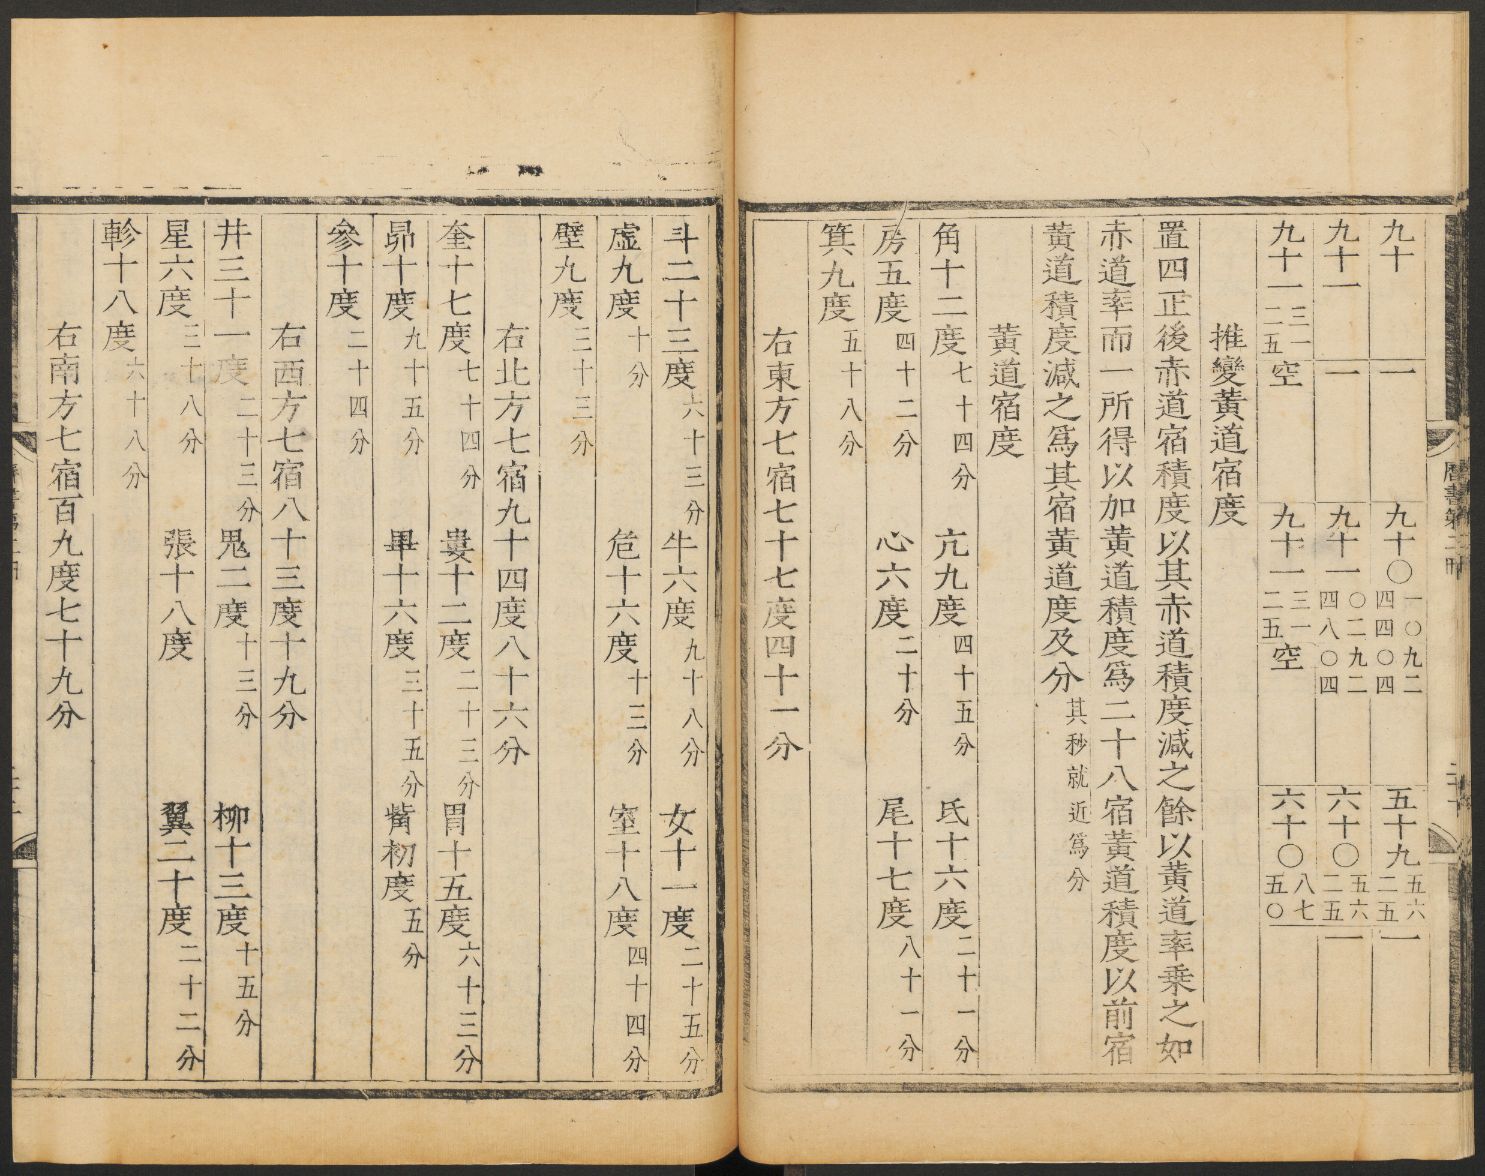 九十 一 九十〇一〇九二四四〇四 五十九五六二五一
九十一 一 九十一〇二九二四八〇四 六十〇五六二五一
九十一三一二五空 九十一三一二五空 六十〇八七五〇
推變黃道宿度
置四正後赤道宿積度以其赤道積度減之餘以黃道率乘之如
赤道率而一所得以加黃道積度爲二十八宿黃道積度以前宿
黃道積度減之爲其宿黃道度及分其秒就近爲分
黃道宿度
角十二度七十四分 亢九度四十五分 氐十六度二十一分
房五度四十二分 心六度二十分 尾十七度八十一分
箕九度五十八分
右東方七宿七十七度四十一分
曆書第二冊
斗二十三度六十三分 牛六度九十八分 女十一度二十五分
虛九度十分 危十六度十三分 室十八度四十四分
壁九度三十三分
右北方七宿九十四度八十六分
奎十七度七十四分 婁十二度二十三分 胃十五度六十三分
昴十度九十五分 畢十六度三十五分 觜初度五分
參十度二十四分
右西方七宿八十三度十九分
井三十一度二十三分 鬼二度十三分 柳十三度十五分
星六度三十八分 張十八度 翼二十度二十二分
軫十八度六十八分
右南方七宿百九度七十九分